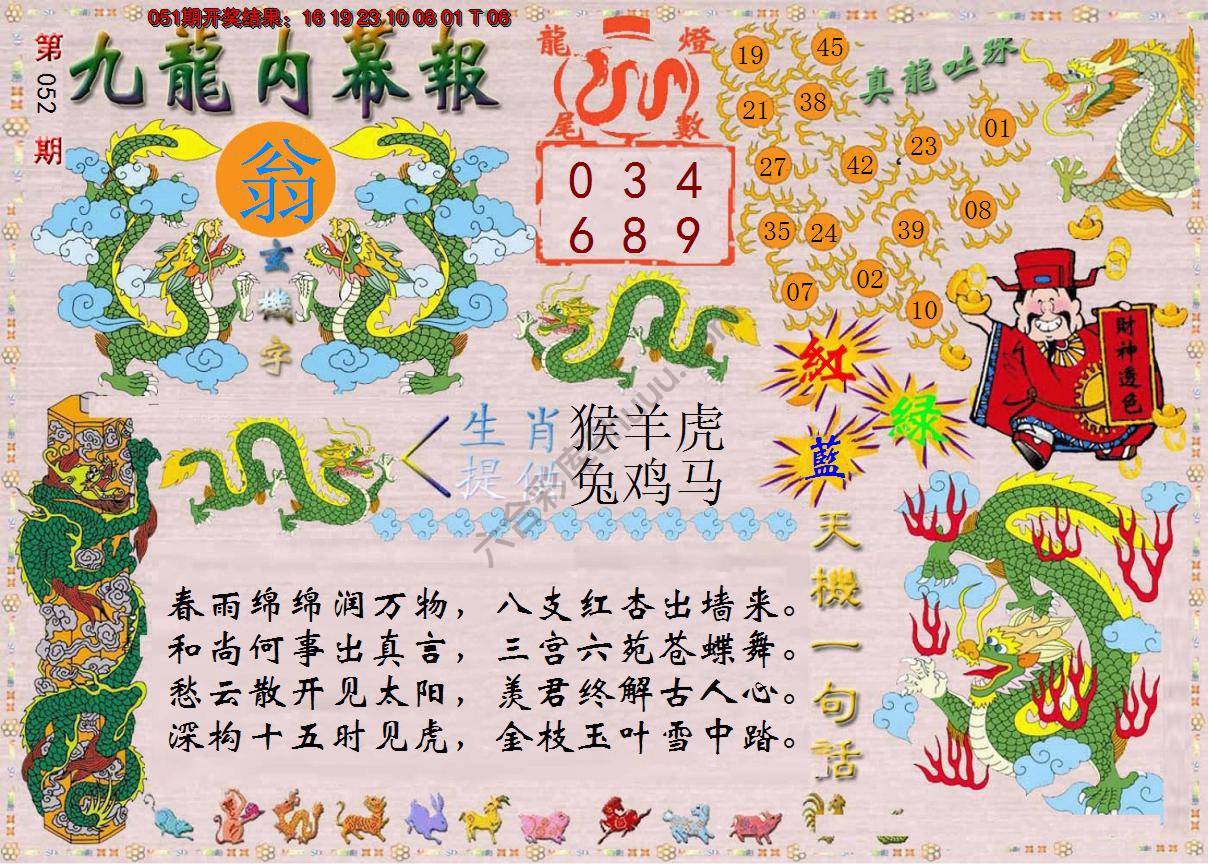 051期开奖结果：16 19 23 10 08 01 T 06
第052期
九龍内幕報
翁
玄機字
龍燈
尾數
0 3 4
6 8 9
真龍吐珠
19
45
21
38
01
23
27
42
08
35
24
39
02
07
10
財神透色
紅
綠
藍
生肖 猴羊虎
提供 兔鸡马
天機一句話
春雨绵绵润万物，八支红杏出墙来。
和尚何事出真言，三宫六苑苍蝶舞。
愁云散开见太阳，羡君终解古人心。
深构十五时见虎，金枝玉叶雪中踏。